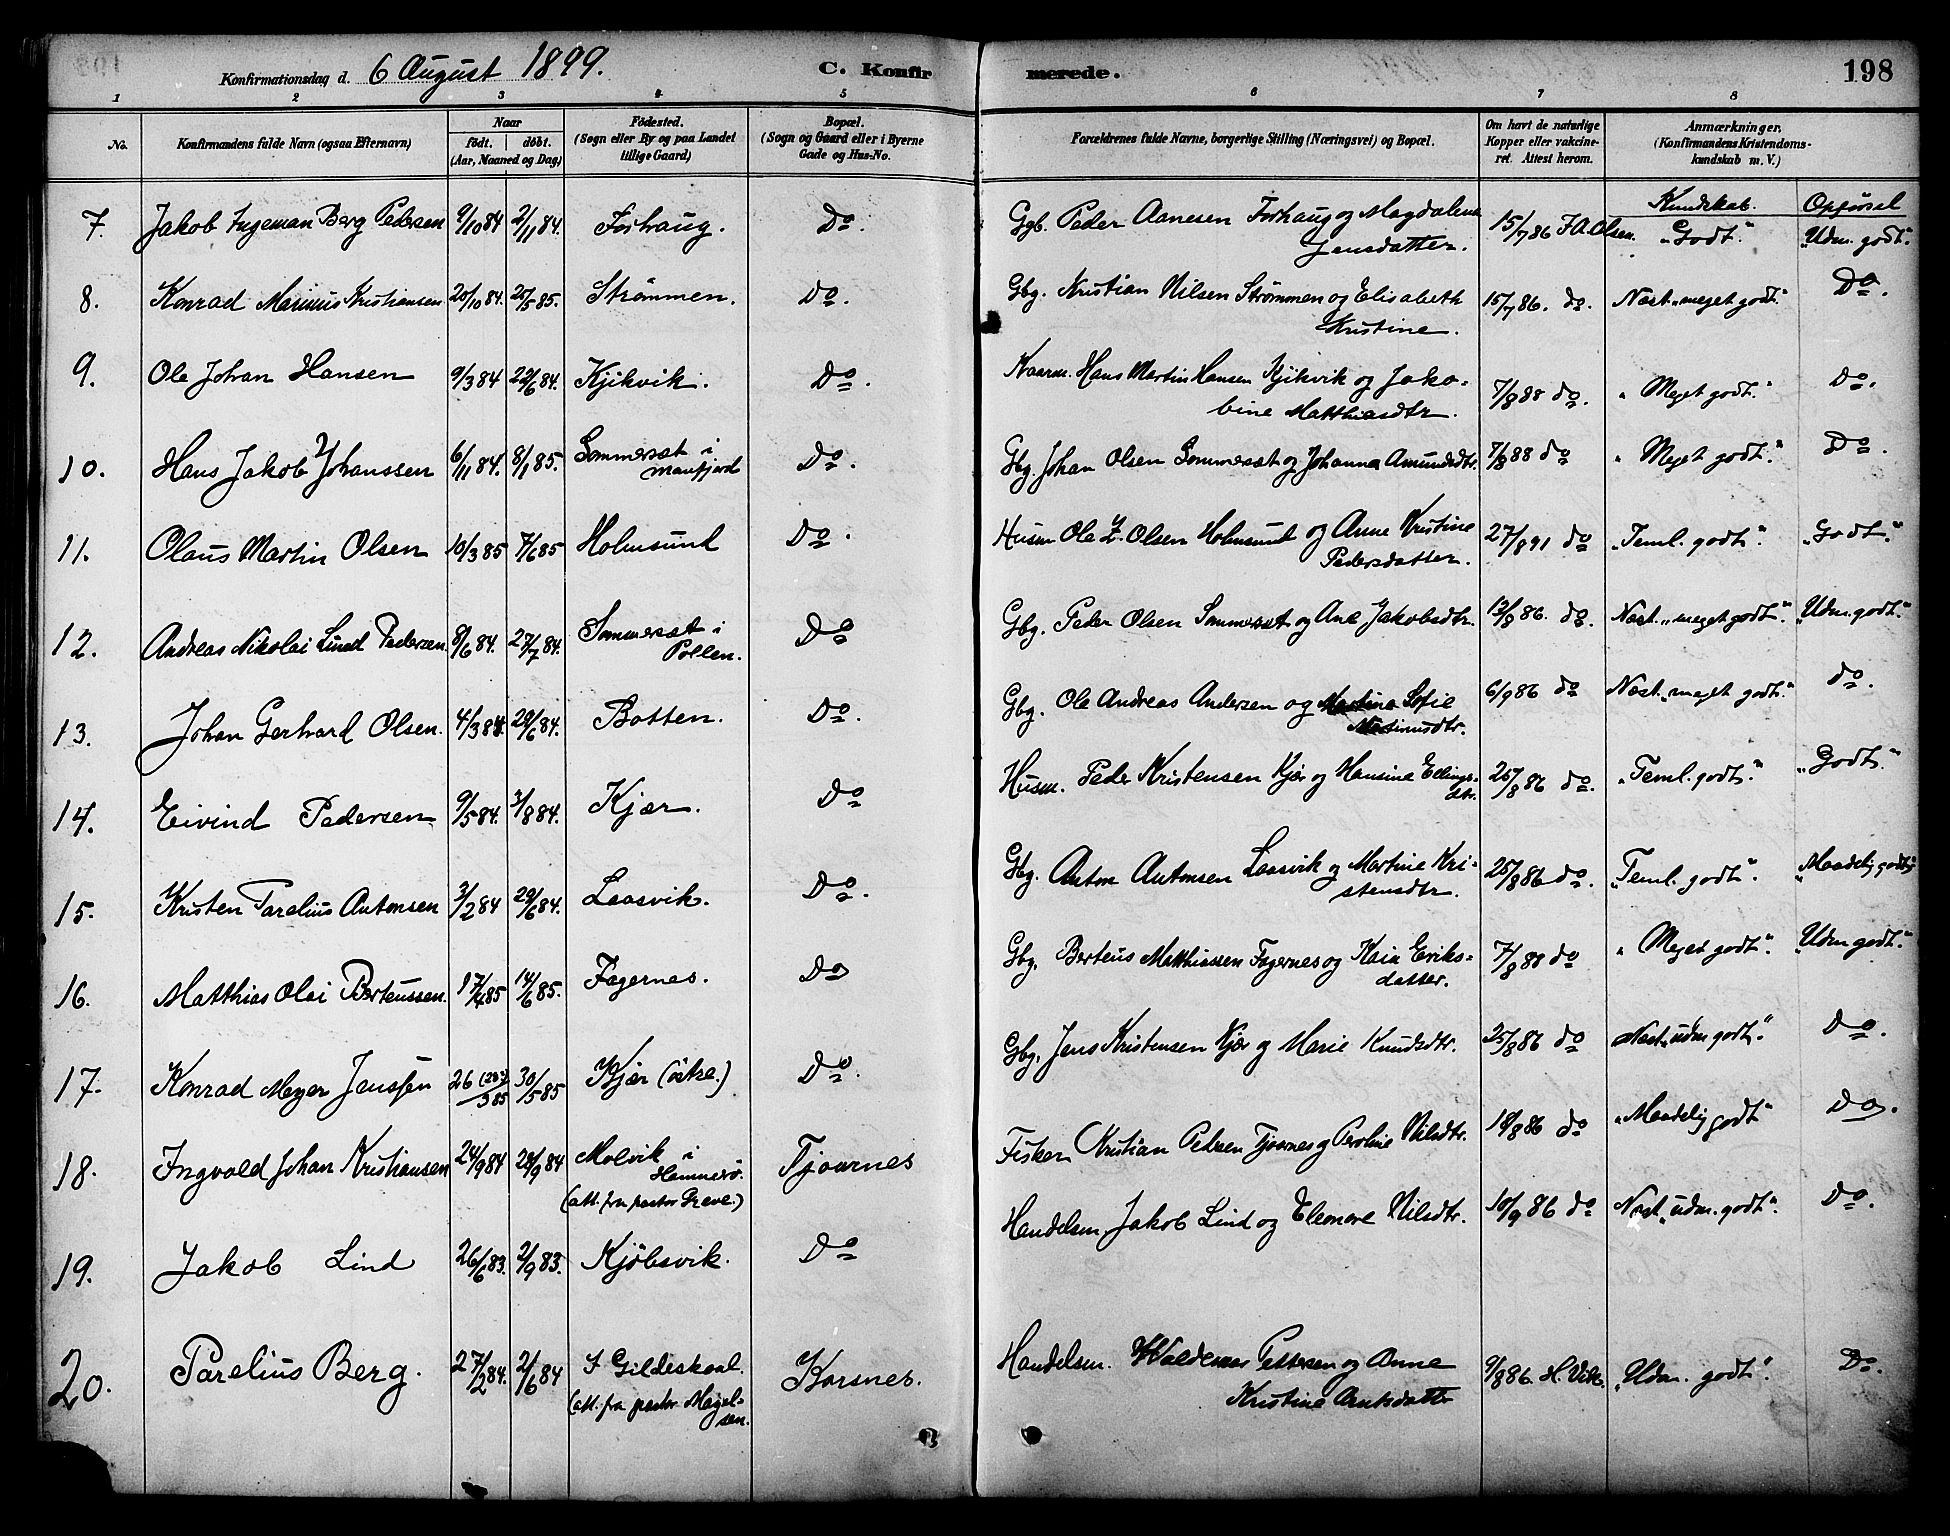 Konfirmationsdag d. 6 August 1899. C. Konfirmerede. 198
1 2 3 4 5 6 7 8
No. Konfirmandens fulde Navn (ogsaa Efternavn) Naar født. døbt. (Aar, Maaned og Dag) Fødested. (Sogn eller By og paa Landet tillige Gaard) Bopæl. (Sogn og Gaard eller i Byerne Gade og Hus-No. Forældrenes fulde Navne, borgerlige Stilling (Næringsvei) og Bopæl. Om havt de naturlige Kopper eller vakcineret. Attest herom. Anmærkninger. (Konfirmandens Kristendomskundskab m. V.)
Kundskab. Opførsel
7. Jakob Ingeman Berg Pedersen 9/10 84 2/11 84. Forhaug. Do. Ggb. Peder Aanesen Forhaug og Magdalena Jensdatter. 15/7 86 J.A. Olsen. "Godt." "Udm. godt."
8. Konrad Marinus Kristiansen 20/10 84. 25/5 85. Strømmen. Do. Gbg. Kristian Nilsen Strømmen og Elisabeth Kristine. 15/7 86. do. Næst "meget godt." Do.
9. Ole Johan Hansen 9/3 84 22/6 84. Kjikvik. Do. Kaarm. Hans Martin Hansen Kjikvik og Jakobine Matthiasdtr. 7/8 88 do. "Meget godt." Do.
10. Hans Jakob Johanssen 6/11 84. 8/1 85. Sommerset i manfjord Do. Gbg. Johan Olsen Sommerset og Johanna Amundsdtr. 7/8 88 do "Meget godt." Do.
11. Olaus Martin Olsen 10/3 85 7/6 85 Holmsund Do. Husm Ole Z. Olsen Holmsund og Anne Kristine Pedersdatter. 27/8 91 do "Teml. godt." "Godt."
12. Andreas Nikolai Lund Pedersen. 8/6 84. 27/7 84. Sommerset i Pollen. Do Gbg. Peder Olsen Sommerset og Ane Jakobsdtr. 12/8 86. do. Næst "meget godt." "Udm. godt."
13. Johan Gerhard Olsen. 4/3 84. 29/6 84. Botten. Do. Gbg. Ole Andreas Andersen og Martina Sofie Martinusdtr. 6/9 86 do Næst "meget godt." do.
14. Eivind Pedersen 9/5 84. 3/8 84. Kjær. Do Husm. Peder Kristensen Kjær og Hansine Ellingsdtr. 25/8 86 do. "Teml. godt." "Godt."
15. Kristen Parelius Antonsen 3/2 84 29/6 84. Laasvik. Do. Gbg. Anton Antonsen Laasvik og Martine Kristensdtr. 25/8 86 do. "Teml. godt." "Maadelig godt"
16. Matthias Olai Berteussen. 17/4 85 14/6 85. Fagernes. Do Gbg. Berteus Matthiassen Fagernes og Kaia Eriksdatter. 7/8 88 do "Meget godt." "Udm godt."
17. Konrad Meyer Jenssen 26 (28?)/3 85 30/5 85 Kjær (østre.) Do. Gbg. Jens Kristensen Kjær og Marie Knudsdtr. 25/8 86 do Næst "udm. godt." Do.
18. Ingvald Johan Kristiansen 24/9 84 28/9 84 Molvik i Hammerø. (att. fra pastor Greve.) Tjoarnes Fisker Kristian Pedersen Tjoarnes og Peroline Nilsdtr. 18/8 86 do "Maadelig godt" Do.
19. Jakob Lind 26/6 83. 2/9 83. Kjøbsvik. Do Handelsm. Jakob Lind og Eleonore Nilsdtr. 10/9 86 do Næst "udm. godt." Do.
20. Parelius Berg. 27/2 84. 2/6 84 I Gildeskaal. (att. fra pastor Magelsen. Korsnes. Handelsm. Waldemar Pettersen og Anne Kristine Arntsdatter 9/8 86. H. Vik. "Udm. godt." Do.